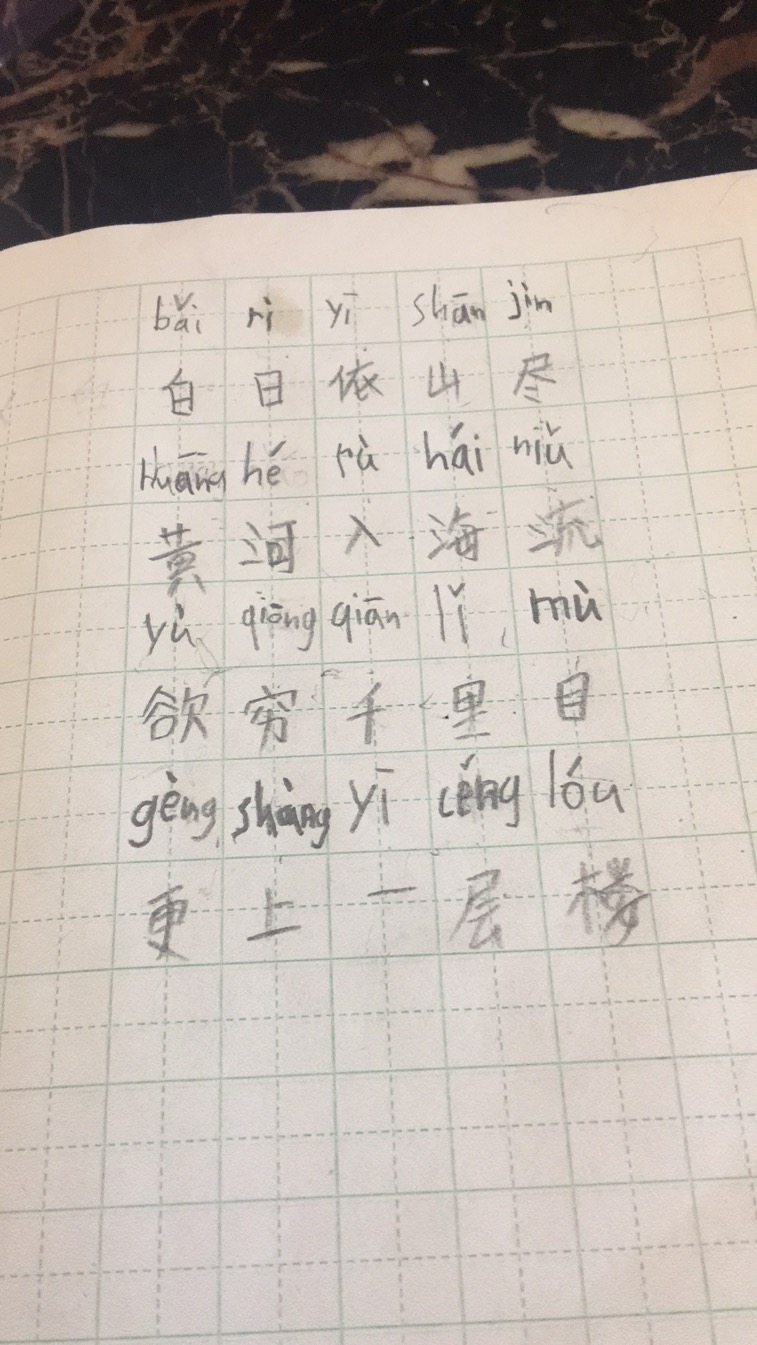 bǎi rì yī shān jìn
白日依山尽
huāng hé rù hái niǔ
黄河入海流
yù qiōng qiān lǐ mù
欲穷千里目
gèng shàng yī céng lóu
更上一层楼